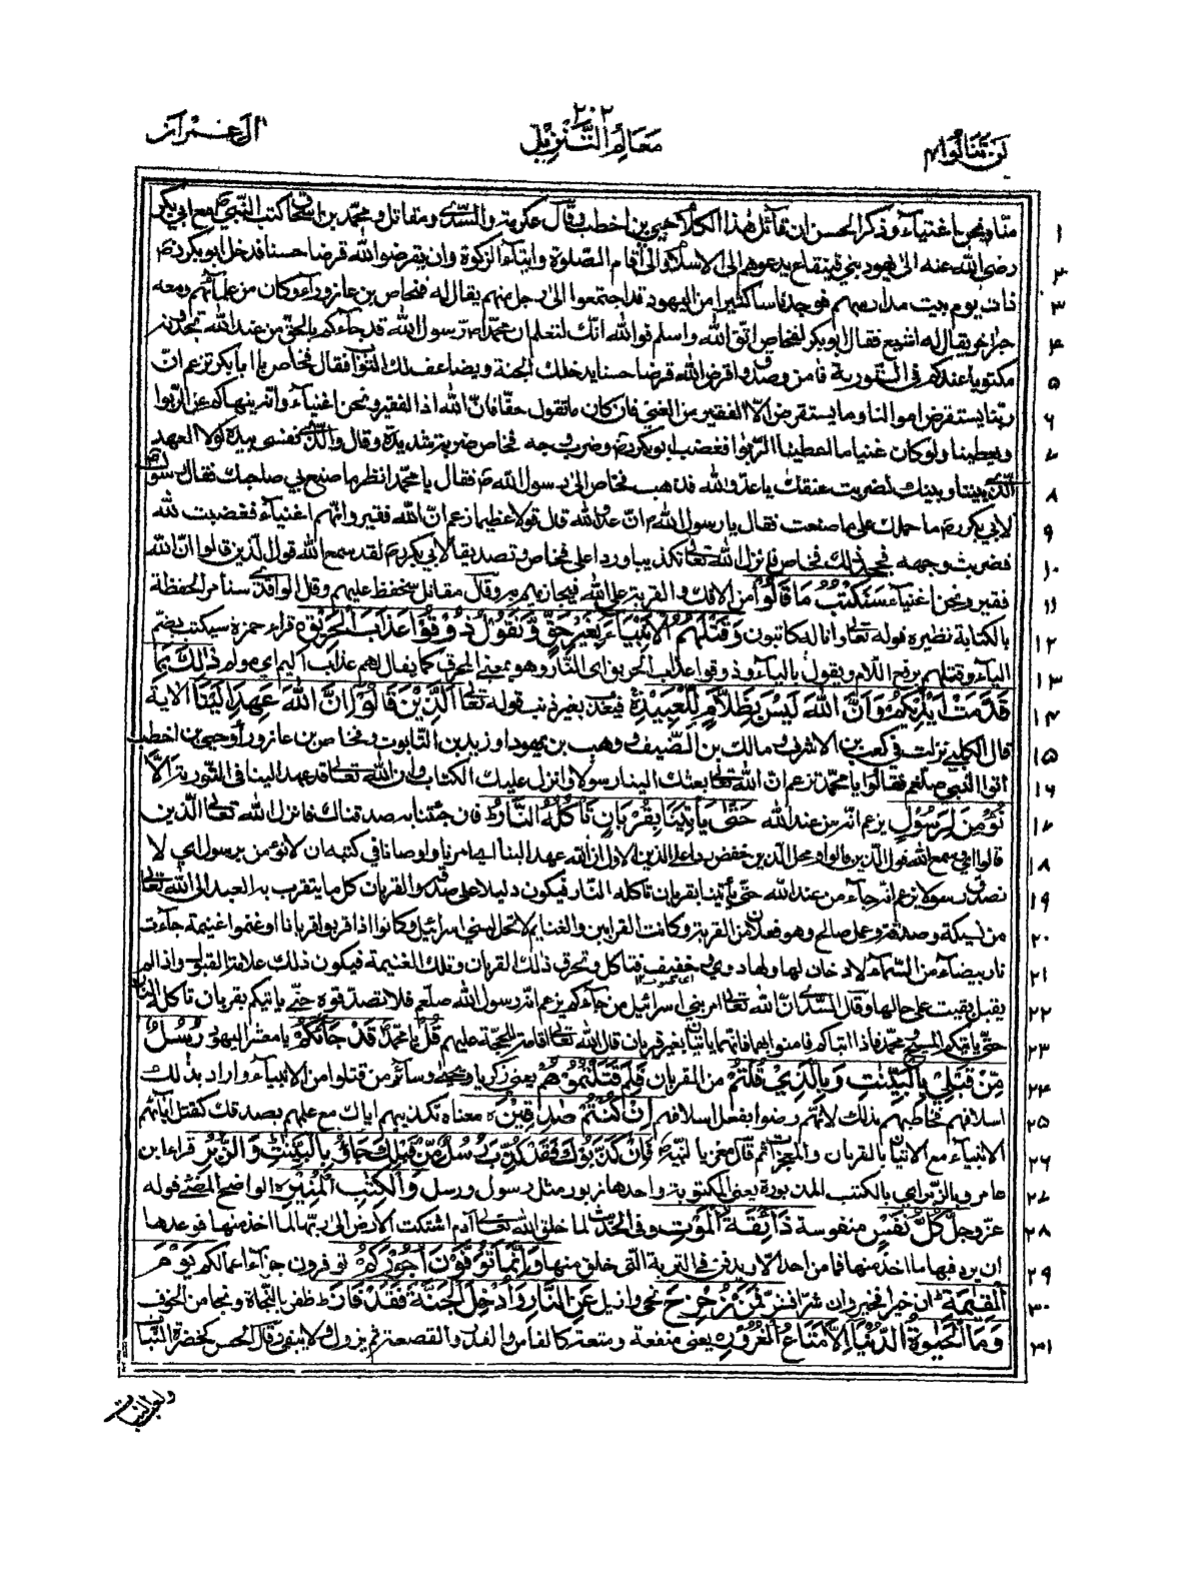 ٢٠٢
لن تنالوا ٤
معالم التنزيل
ال عمران
١ منا ونحن اغنياء وذكر الحسن ان قائل هذا الكلام حيي بن اخطب وقال عكرمة والسدي ومقاتل ومحمد بن اسحاق كتب النبي ص مع ابي بكر
٢ رضي الله عنه الى يهود بني قينقاع يدعوهم الى الاسلام والى اقام الصلوة وايتاء الزكوة وان يقرضوا الله قرضا حسنا فدخل ابو بكر رضم
٣ ذات يوم بيت مدارسهم فوجد ناسا كثيرا من اليهود قد اجتمعوا الى رجل منهم يقال له فنحاص بن عازوراء وكان من علمائهم ومعه
٤ حبر اخر يقال له اشيع فقال ابو بكر لفنحاص اتق الله واسلم فوالله انك لتعلم ان محمدا رسول الله قد جاءكم بالحق من عند الله تجدونه
٥ مكتوبا عندكم في التورية فامن وصدق واقرض الله قرضا حسنا يدخلك الجنة ويضاعف لك الثواب فقال فنحاص يا ابا بكر تزعم ان
٦ ربنا يستقرض اموالنا وما يستقرض الا الفقير من الغني فان كان ما تقول حقا فان الله اذا الفقير ونحن اغنياء وانه ينهاكم عن الربوا
٧ ويعطينا ولو كان غنيا ما اعطينا الربوا فغضب ابو بكر رضم وضرب وجه فنحاص ضربة شديدة وقال والذي نفسي بيده لولا العهد
٨ الذي بيننا وبينك لضربت عنقك يا عدو الله فذهب فنحاص الى رسول الله ص فقال يا محمد انظر ما صنع بي صاحبك فقال رسول الله
٩ لابي بكر رضم ما حملك على ما صنعت فقال يا رسول الله ان عدو الله قال قولا عظيما زعم ان الله فقير وانهم اغنياء فغضبت لله
١٠ فضربت وجهه فجحد ذلك فنحاص فانزل الله تعالى تكذيبا وردا على فنحاص وتصديقا لابي بكر رضم لقد سمع الله قول الذين قالوا ان الله
١١ فقير ونحن اغنياء سَنَكْتُبُ مَا قَالُوْا من الافك والفرية على الله فيجازيهم به وقال مقاتل سنحفظ عليهم وقال الواقدي سنأمر الحفظة
١٢ بالكتابة نظيره قوله تعالى وانا له كاتبون وَقَتْلَهُمُ الْاَنْبِيَاءَ بِغَيْرِ حَقٍّ وَّنَقُوْلُ ذُوْقُوْا عَذَابَ الْحَرِيْقِ ه قراء حمزة سيكتب بضم
١٣ الياء وقتلهم برفع اللام ويقول بالياء وذوقوا عذاب الحريق اى النار وهو بمعنى المحرق كما يقال لهم عذاب اليم اى مولم ذٰلِكَ بِمَا
١٤ قَدَّمَتْ اَيْدِيْكُمْ وَاَنَّ اللّٰهَ لَيْسَ بِظَلَّامٍ لِّلْعَبِيْدِ ة فيعذب بغير ذنب قوله تعالى اَلَّذِيْنَ قَالُوْا اِنَّ اللّٰهَ عَهِدَ اِلَيْنَا الاية
١٥ قال الكلبي نزلت في كعب بن الاشرف ومالك بن الصيف ووهب بن يهودا وزيد بن التابوت وفنحاص بن عازوراء وحيي بن اخطب
١٦ اتوا النبي صلعم فقالوا يا محمد تزعم ان الله تعالى بعثك الينا رسولا وانزل عليك الكتاب وان الله تعالى قد عهد الينا في التورية اَلَّا
١٧ نُؤْمِنَ لِرَسُوْلٍ يزعم انه من عند الله حَتّٰى يَأْتِيَنَا بِقُرْبَانٍ تَأْكُلُهُ النَّارُ ط فان جئتنا به صدقناك فانزل الله تعالى الذين
١٨ قالوا اي سمع الله قول الذين قالوا ومحل الذين خفض ردا على الذين الاول ان الله عهد الينا اى امرنا واوصانا في كتبه ان لا نؤمن برسول اي لا
١٩ نصدق رسولا يزعم انه جاء من عند الله حتى يأتينا بقربان تأكله النار فيكون دليلا على صدقه والقربان كل ما يتقرب به العبد الى الله تعالى
٢٠ من نسيكة وصدقة وعمل صالح وهو فعلان من القربة وكانت القرابين والغنايم لا تحل لبني اسرائيل وكانوا اذا قربوا قربانا او غنموا غنيمة جاءت
٢١ نار بيضاء من السماء لا دخان لها ولها دوي خفيف فتأكل وتحرق ذلك القربان وتلك الغنيمة فيكون ذلك علامة القبول واذا لم
٢٢ يقبل بقيت على حالها وقال السدي ان الله تعالى امر بني اسرائيل من جاءكم يزعم انه رسول الله صلعم فلا تصدقوه حتى ياتيكم بقربان تاكله النار
٢٣ حتى ياتيكم المسيح ومحمد فاذا اتياكم فامنوا بهما فانهما ياتيان بغير قربان قال الله تعالى اقامة للحجة عليهم قُلْ يا محمد قَدْ جَاءَكُمْ يا معشر اليهود رُسُلٌ
٢٤ مِّنْ قَبْلِيْ بِالْبَيِّنٰتِ وَبِالَّذِيْ قُلْتُمْ من القربان فَلِمَ قَتَلْتُمُوْهُمْ يعني زكريا ويحيى وسائر من قتلوا من الانبياء واراد بذلك
٢٥ اسلافهم فخاطبهم بذلك لانهم رضوا بفعل اسلافهم اِنْ كُنْتُمْ صٰدِقِيْنَ ه معناه تكذيبهم اياك مع علمهم بصدقك كقتل ابائهم
٢٦ الانبياء مع الاتيان بالقربان والمعجزات ثم قال معزيا لنبيه فَاِنْ كَذَّبُوْكَ فَقَدْ كُذِّبَ رُسُلٌ مِّنْ قَبْلِكَ جَاءُوْ بِالْبَيِّنٰتِ وَالزُّبُرِ قرا ابن
٢٧ عامر وبالزبر اي بالكتب المزبورة يعني المكتوبة واحدها زبور مثل رسول ورسل وَالْكِتٰبِ الْمُنِيْرِ ه الواضح المضئ قوله
٢٨ عز وجل كُلُّ نَفْسٍ منفوسة ذَائِقَةُ الْمَوْتِ وفي الحديث لما خلق الله تعالى آدم اشتكت الارض الى ربها لما اخذ منها فوعدها
٢٩ ان يرد فيها ما اخذ منها فما من احد الا يدفن في التربة التي خلق منها وَاِنَّمَا تُوَفَّوْنَ اُجُوْرَكُمْ توفرون جزاء اعمالكم يَوْمَ
٣٠ الْقِيٰمَةِ ان خيرا فخير وان شرا فشر فَمَنْ زُحْزِحَ نحي وازيل عَنِ النَّارِ وَاُدْخِلَ الْجَنَّةَ فَقَدْ فَازَ ط ظفر بالنجاة ونجا من الخوف
٣١ وَمَا الْحَيٰوةُ الدُّنْيَا اِلَّا مَتَاعُ الْغُرُوْرِ ه يعني منفعة ومتعة كالفاس والقدر والقصعة ثم يزول ولا يبقى وقال الحسن كخضرة النبات
ولعب البنات